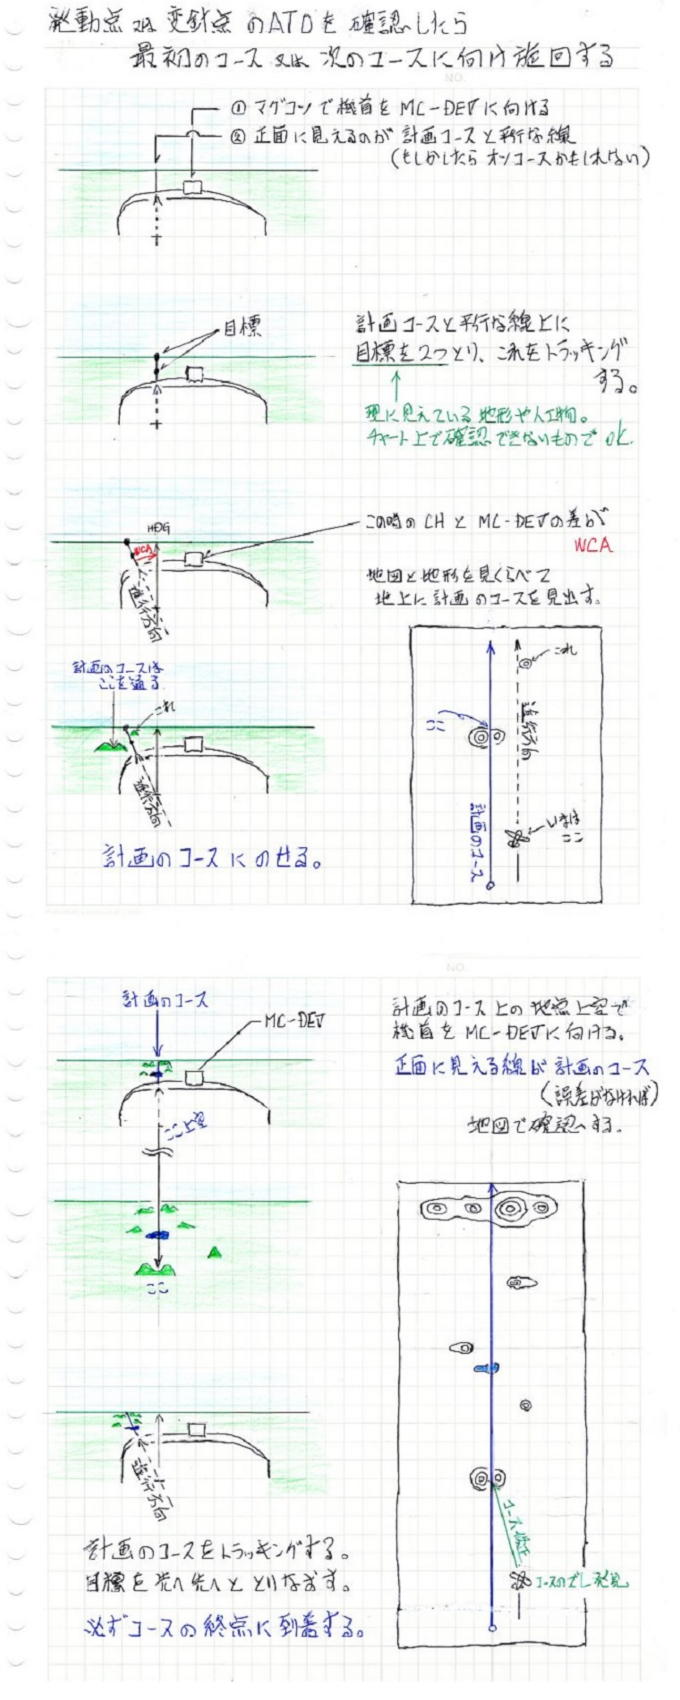 発動点又は変針点のATOを確認したら
最初のコース又は次のコースに向け旋回する
NO.
① マグコンで機首をMC-DEVに向ける
② 正面に見えるのが計画コースと平行な線
(もしかしたらオンコースかもしれない)
目標
計画コースと平行な線上に
目標を2つとり、これをトラッキング
する。
現に見えている地形や人工物。
チャート上で確認できないものでOK.
HDG
WCA
進行方向
この時のCHとMC-DEVの差が
WCA
地図と地形を見くらべて
地上に計画のコースを見出す。
計画のコースは
ここを通る
これ
進行方向
計画のコースにのせる。
これ
ここ
進行方向
いまは
ここ
計画のコース
NO.
計画のコース
MC-DEV
ここ上空
ここ
計画のコース上の地点上空で
機首をMC-DEVに向ける。
正面に見える線が計画のコース
(誤差がなければ)
地図で確認する。
進行方向
コース修正
コースのズレ発見
計画のコースをトラッキングする。
目標を先へ先へととりなおす。
必ずコースの終点に到着する。